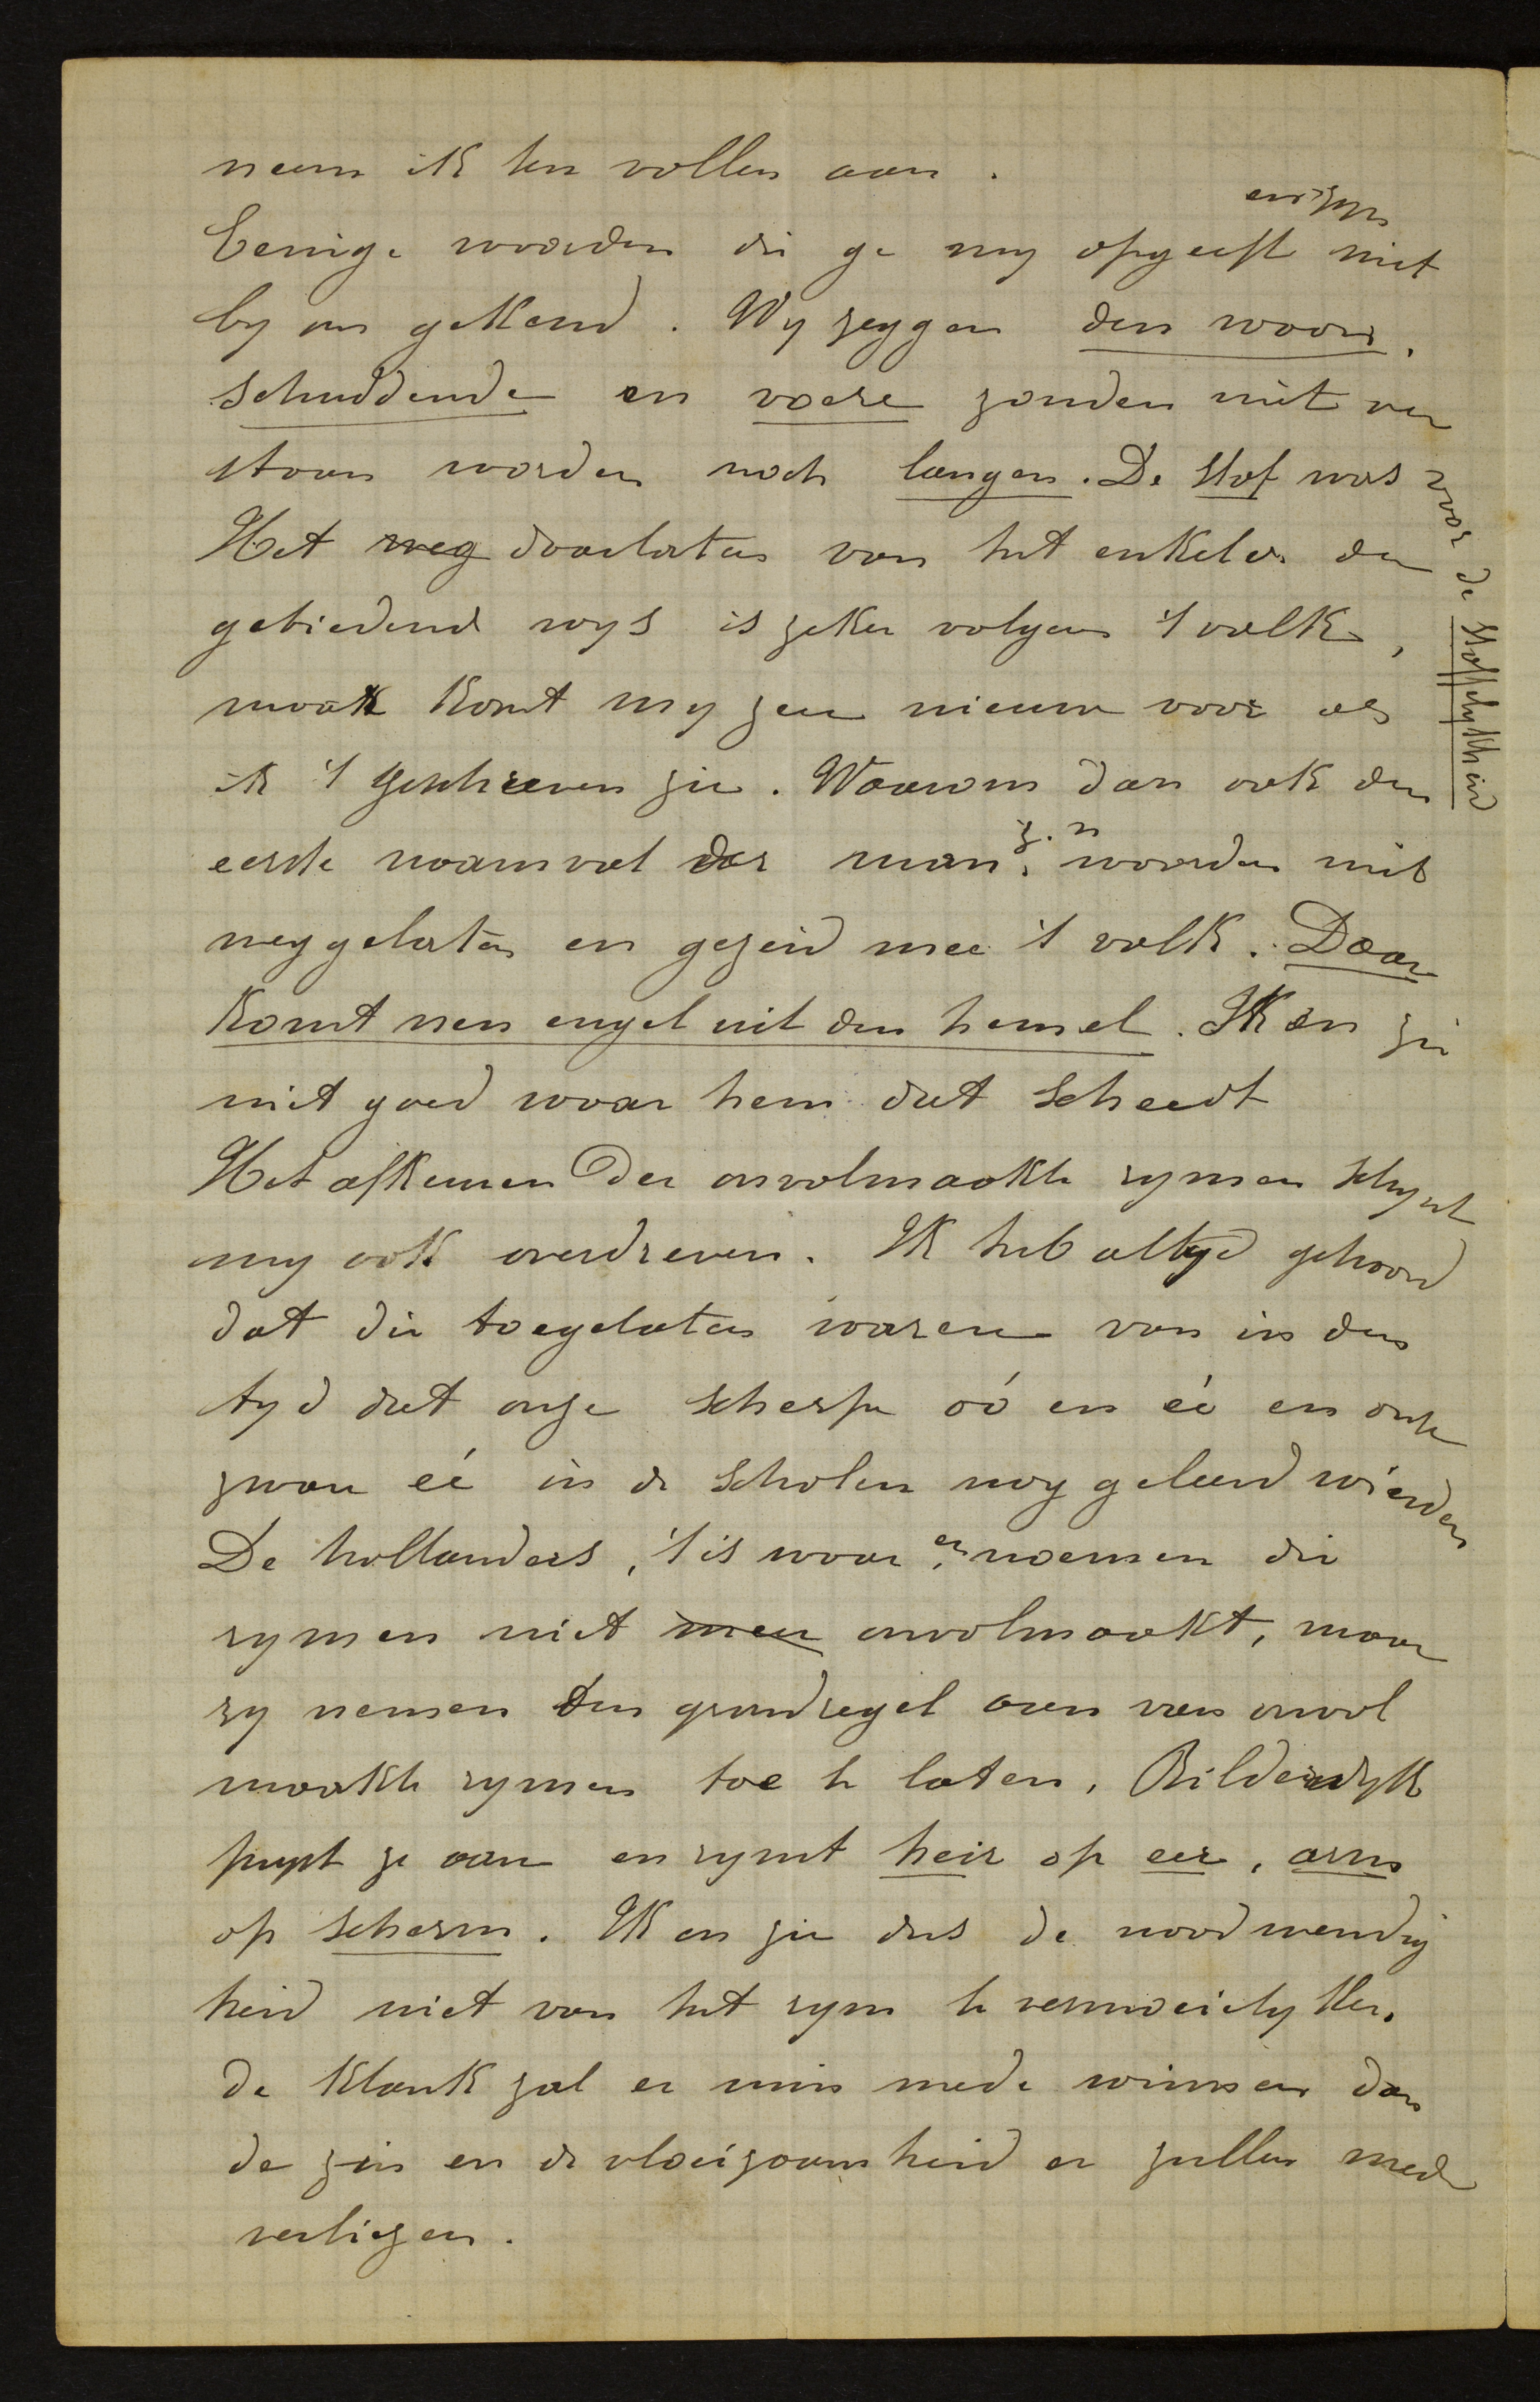 neem ik ten vollen aan.
Eenige woorden die ge my opgeeft en zyn niet
by ons gekend. Wy zeggen den woon,
schuddende en voere zouden niet ver
staan worden noch langen. De stof was voor de stoffelykheid
Het weg doorlaten van het enkelv. der
gebiedend wys is zeker volgens 't volk,
maar komt my zeer nieuw voor als
ik 't geschreven zie. Waarom dan ook den
eerste naamval der man. z. n woorden niet
weggelaten en gezeid mee 't volk. Daar
komt nen engel uit den hemel. Ik en zie
niet goed waar hem dat scheedt
Het afkeuren der onvolmaakte rymen schynt
my ook overdreven. Ik heb altyd gehoord
dat die toegelaten waren van in den
tyd dat onze scherpe oó en eé en onze
zware eé in de scholen nog geleerd wierden
De hollanders, 't is waar, en noemen die
rymen niet meer onvolmaakt, maar
zy nemen den grondregel aan van onvol
maakte rymen toe te laten, Bilderdyk
prypt ze aan en rymt heir op eer, arm
op scherm. Ik en zie dus de noodwendig
heid niet van het rym te vermoeilyken.
de klank zal er min mede winnen dan
de zin en de vloeizaamheid er zullen mede
verliezen.